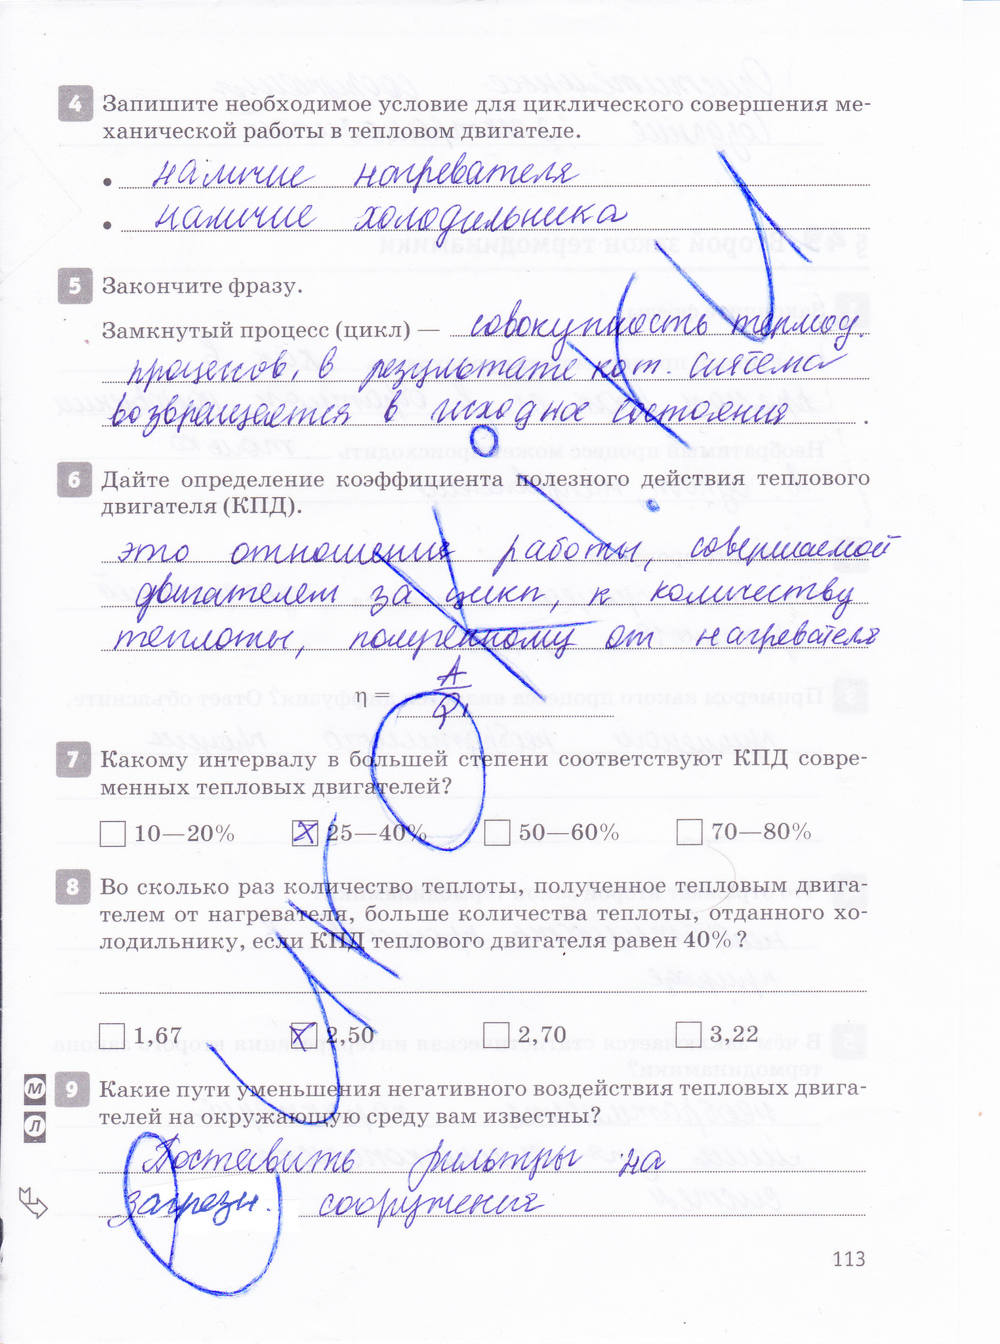 4 Запишите необходимое условие для циклического совершения ме-
ханической работы в тепловом двигателе.
• наличие нагревателя
• наличие холодильника
5 Закончите фразу.
Замкнутый процесс (цикл) — совокупность термод.
процессов, в результате кот. система
возвращается в исходное состояния .
6 Дайте определение коэффициента полезного действия теплового
двигателя (КПД).
это отношение работы, совершаемой
двигателем за цикл, к количеству
теплоты, полученному от нагревателя
η = A
Q₁
7 Какому интервалу в большей степени соответствуют КПД совре-
менных тепловых двигателей?
10—20% 25—40% 50—60% 70—80%
8 Во сколько раз количество теплоты, полученное тепловым двига-
телем от нагревателя, больше количества теплоты, отданного хо-
лодильнику, если КПД теплового двигателя равен 40%?
1,67 2,50 2,70 3,22
М
Л
9 Какие пути уменьшения негативного воздействия тепловых двига-
телей на окружающую среду вам известны?
Поставить фильтры на
загрязн. сооружения
113